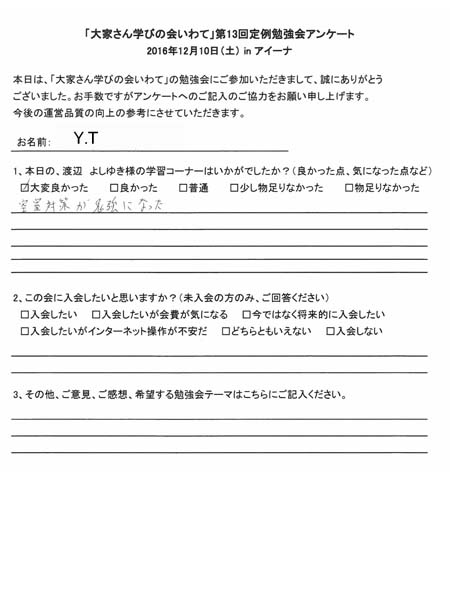 「大家さん学びの会いわて」第13回定例勉強会アンケート
2016年12月10日（土） in アイーナ
本日は、「大家さん学びの会いわて」の勉強会にご参加いただきまして、誠にありがとう
ございました。お手数ですがアンケートへのご記入のご協力をお願い申し上げます。
今後の運営品質の向上の参考にさせていただきます。
お名前: Y.T
1、本日の、渡辺　よしゆき様の学習コーナーはいかがでしたか？（良かった点、気になった点など）
☑大変良かった　□良かった　□普通　□少し物足りなかった　□物足りなかった
空室対策が勉強になった
2、この会に入会したいと思いますか？（未入会の方のみ、ご回答ください）
□入会したい　□入会したいが会費が気になる　□今ではなく将来的に入会したい
□入会したいがインターネット操作が不安だ　□どちらともいえない　□入会しない
3、その他、ご意見、ご感想、希望する勉強会テーマはこちらにご記入ください。